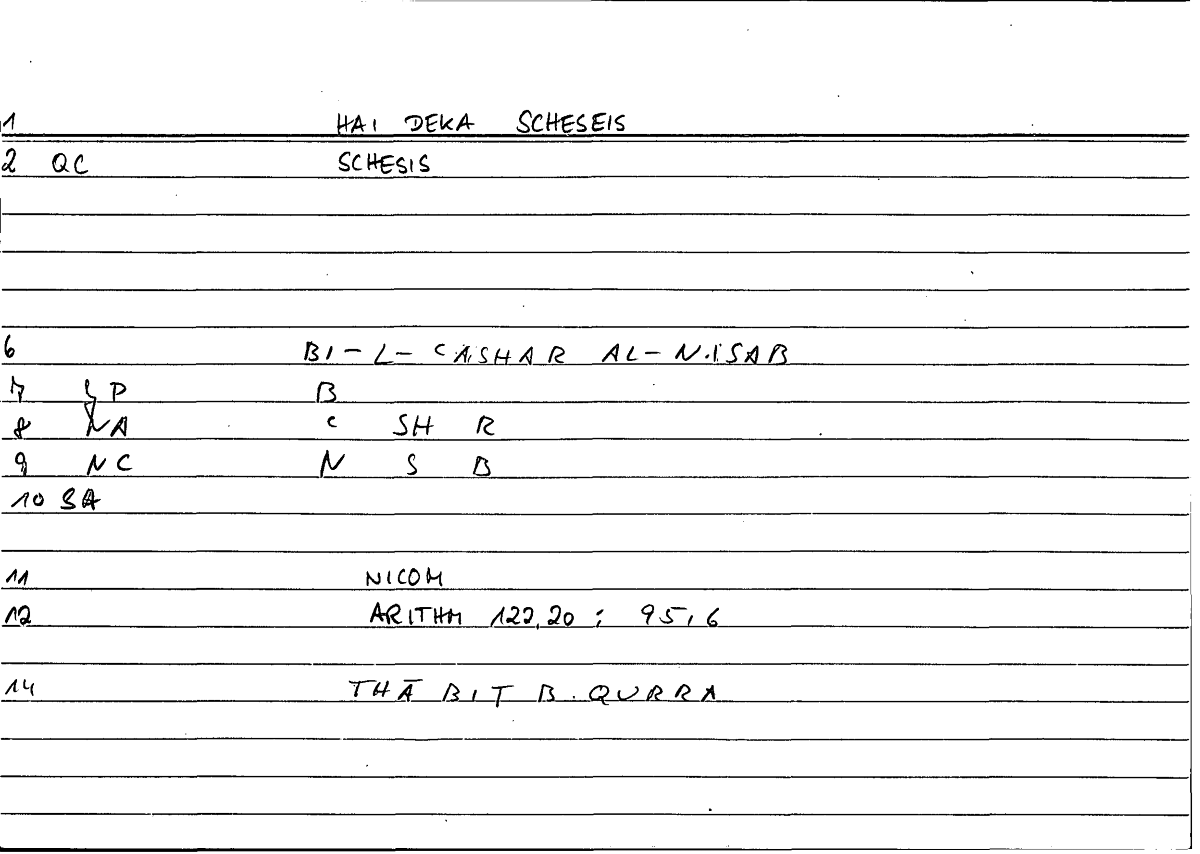 1 HAI DEKA SCHESEIS
2 QC SCHESIS
6 BI-L-CASHAR AL-NISAB
7 P B
8 NA C SH R
9 NC N S B
10 SA
11 NICOM
12 ARITHM 122,20 ; 95,6
14 THĀBIT B. QURRA